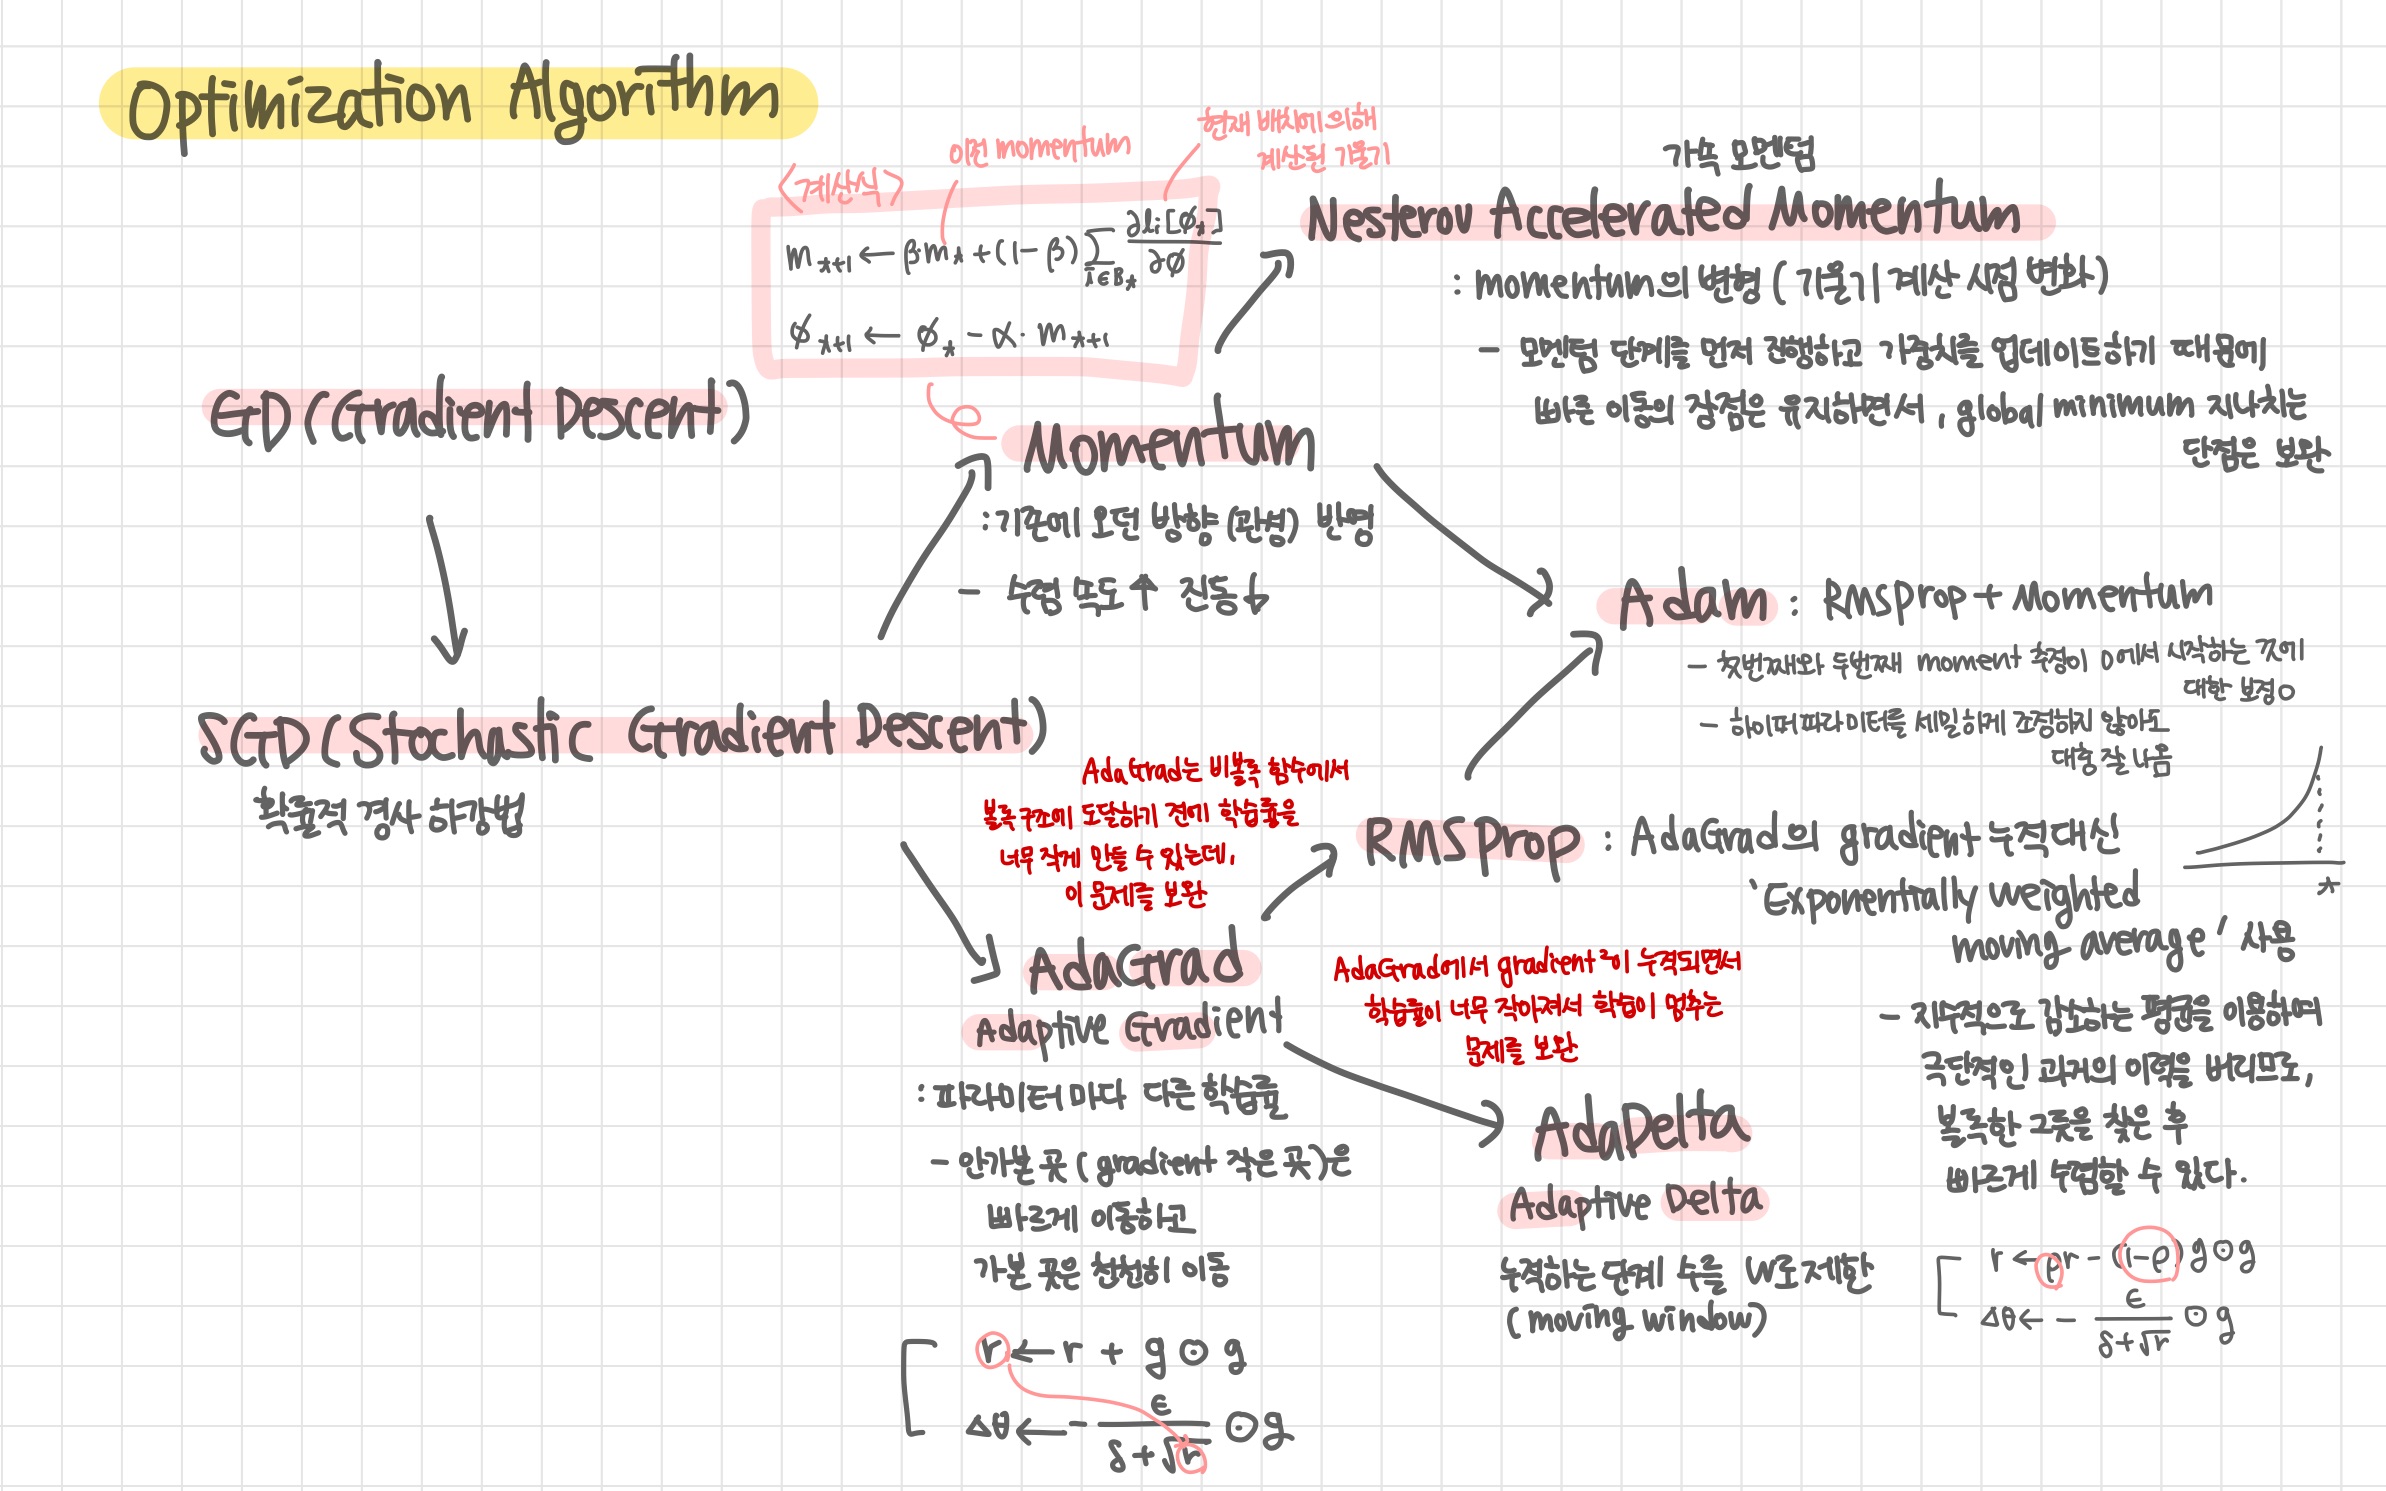 Optimization Algorithm
<계산식>
이전 momentum
현재 배치에 의해
계산된 기울기
m_{t+1} ← β·m_t + (1-β) Σ_{i∈B_t} ∂l_i[ϕ_t]/∂ϕ
ϕ_{t+1} ← ϕ_t - α · m_{t+1}
가속 모멘텀
Nesterov Accelerated Momentum
: momentum의 변형 (기울기 계산 시점 변화)
- 모멘텀 단계를 먼저 진행하고 가중치를 업데이트하기 때문에
빠른 이동의 장점은 유지하면서, global minimum 지나치는
단점은 보완
GD (Gradient Descent)
Momentum
: 기존에 오던 방향 (관성) 반영
- 수렴 속도↑ 진동↓
SGD (Stochastic Gradient Descent)
확률적 경사 하강법
Adam : RMSProp + Momentum
- 첫번째와 두번째 moment 추정이 0에서 시작하는 것에
대한 보정○
- 하이퍼파라미터를 세밀하게 조정하지 않아도
대충 잘 나옴
AdaGrad는 비볼록 함수에서
볼록 구조에 도달하기 전에 학습률을
너무 작게 만들 수 있는데,
이 문제를 보완
RMSProp : AdaGrad의 gradient 누적대신
'Exponentially weighted
moving average' 사용
t
- 지수적으로 감소하는 평균을 이용하여
극단적인 과거의 이력을 버리므로,
볼록한 그릇을 찾은 후
빠르게 수렴할 수 있다.
r ← ρr - (1-ρ) g⊙g
Δθ ← - ϵ/(δ+√r) ⊙ g
AdaGrad
Adaptive Gradient
: 파라미터 마다 다른 학습률
- 안가본 곳 (gradient 작은 곳)은
빠르게 이동하고
가본 곳은 천천히 이동
r ← r + g ⊙ g
Δθ ← - ϵ/(δ+√r) ⊙ g
AdaGrad에서 gradient²이 누적되면서
학습률이 너무 작아져서 학습이 멈추는
문제를 보완
AdaDelta
Adaptive Delta
누적하는 단계 수를 W로 제한
(moving window)